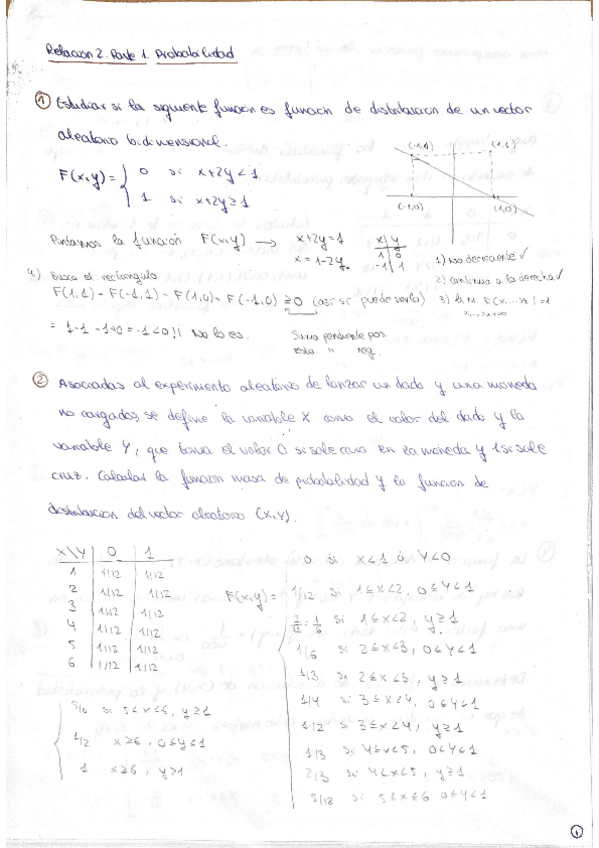 Relacion 2. Parte 1. Probabilidad
① Estudiar si la siguiente funcion es funcion de distribucion de un vector
aleatorio bidimensional.
F(x,y) = { 0 si x+2y<1
1 si x+2y≥1
(-1,1) (1,1)
(-1,0) (1,0)
Pintamos la función F(x,y) → x+2y=1
x=1-2y
x | y
1 | 0
-1 | 1
1) No decreciente ✓
2) continua a la derecha ✓
3) lim F(x,...,x)=1
4) Busca el rectángulo
F(1,1) - F(-1,1) - F(1,0) - F(-1,0) ≥0 (así si puede serlo)
= 1-1 -1+0 = -1<0!! No lo es.
Suma pendiente pos
resta " neg.
② Asociadas al experimento aleatorio de lanzar un dado y una moneda
no cargados, se define la variable X como el valor del dado y la
variable Y, que toma el valor 0 si sale cara en la moneda y 1 si sale
cruz. Calcular la funcion masa de probabilidad y la funcion de
distribucion del vector aleatorio (X,Y).
X\Y | 0 | 1
1 | 1/12 | 1/12
2 | 1/12 | 1/12
3 | 1/12 | 1/12
4 | 1/12 | 1/12
5 | 1/12 | 1/12
6 | 1/12 | 1/12
F(x,y) =
0 si x<1 ó y<0
1/12 si 1≤x<2, 0≤y<1
2/12 = 1/6 si 1≤x<2, y≥1
1/6 si 2≤x<3, 0≤y<1
1/3 si 2≤x<3, y≥1
1/4 si 3≤x<4, 0≤y<1
1/2 si 3≤x<4, y≥1
1/3 si 4≤x<5, 0≤y<1
2/3 si 4≤x<5, y≥1
5/12 si 5≤x≤6 0≤y<1
si 5≤x<6, y≥1
1/2 x≥6, 0≤y<1
1 x≥6, y≥1
1